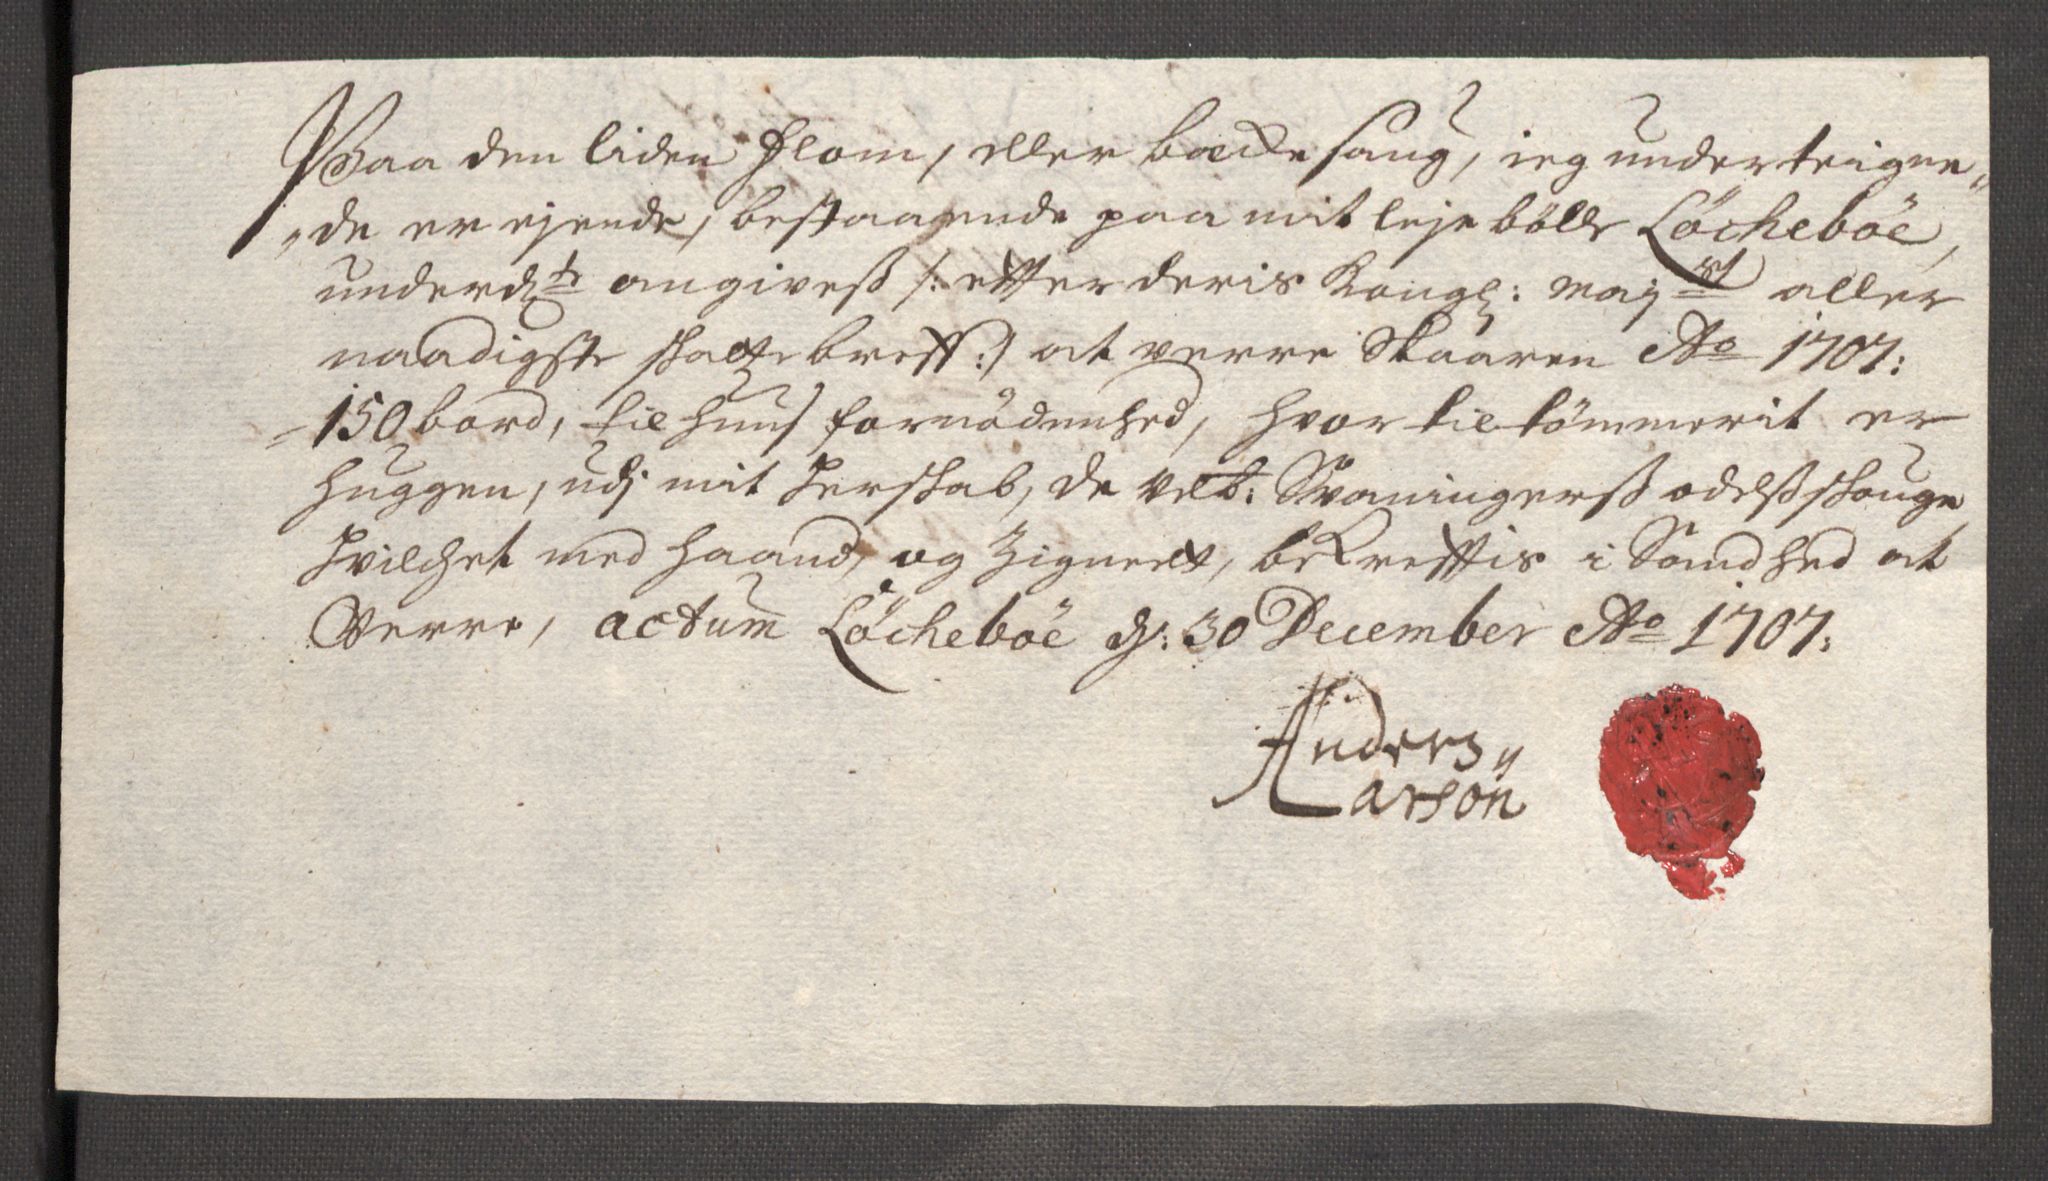 Paa den liden Flom, eller bæcke saug, ieg underteigne„
„de er ejende, bestaaende paa mit leje bölle Löcheböe,
underd: angivess /: etter deris Kongl: maj:st aller
naadigste skatte breff:/ at verre Skaaren Ao 1707:
150 bord, til huus fornödenhed, hvor til tömmerit er
huggen, udj mit herskab, de velb: Svaningerss odelss skouge
hvilchet med haand, og Zignedt, bekrefftis i Sandhed at
Verre, actum Löcheböe d: 30 December Ao 1707:
Anders„
Larson